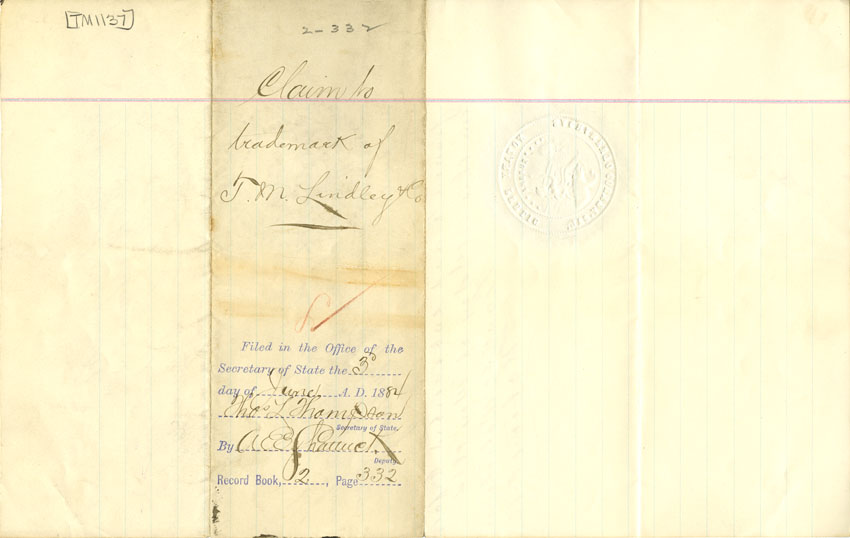 [TM1137]
2-332
Claim to
trademark of
T. M. Lindley & Co
Filed in the Office of the
Secretary of State the 3d
day of June A. D. 1884
Thos L Thompson
Secretary of State.
By A E Shattuck
Deputy.
Record Book, 2, Page 332